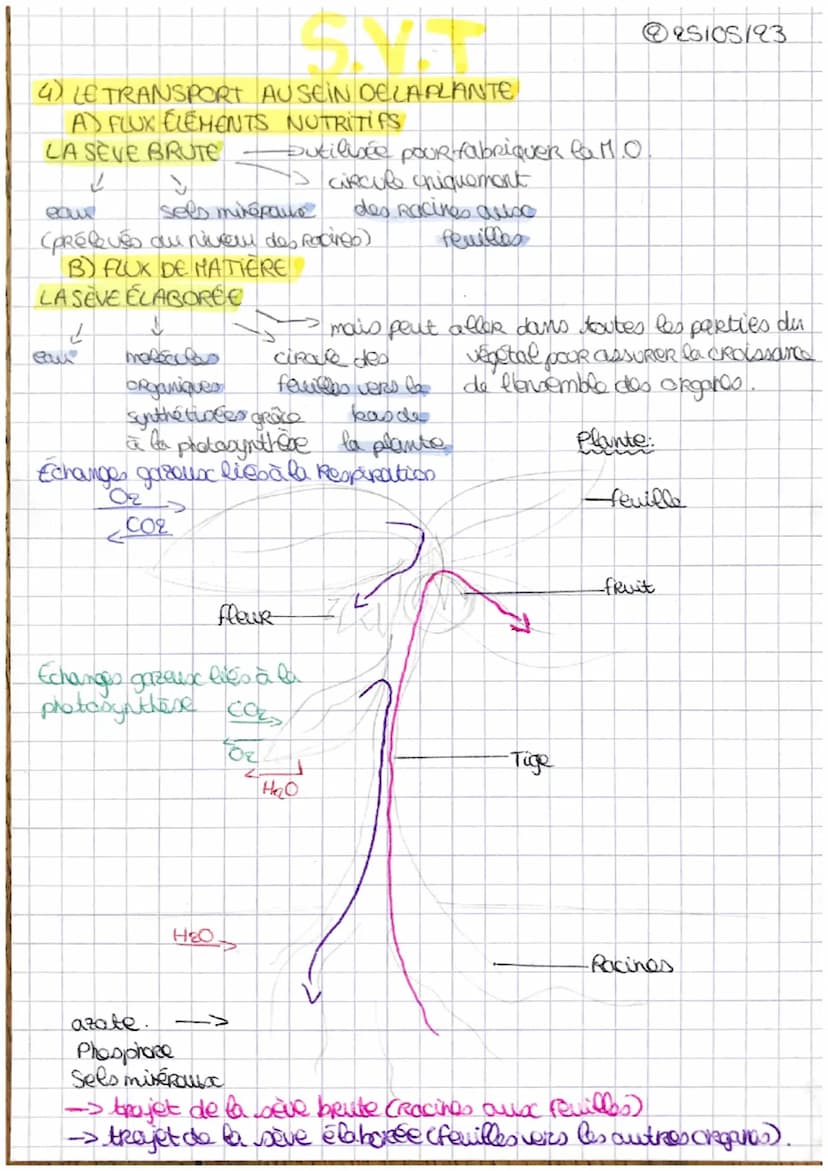 S.V.T
② 25/05/23
4) LE TRANSPORT AU SEIN DE LA PLANTE
A) FLUX ÉLÉMENTS NUTRITIFS
LA SÈVE BRUTE → utilisée pour fabriquer la M.O.
↓ ↘ → circule uniquement
eau sels minéraux des racines aux
(prélevés au niveau des racines) feuilles
B) FLUX DE MATIÈRE
LA SÈVE ÉLABORÉE
→ mais peut aller dans toutes les parties du
eau molécules circule des végétal pour assurer la croissance
organiques feuilles vers le de l'ensemble des organes.
synthétisées grâce bas de
à la photosynthèse la plante
Plante:
Échanges gazeux liés à la respiration
O2 →
← CO2
feuille
fruit
fleur
Echanges gazeux liés à la
photosynthèse CO2 →
← O2
← H2O
Tige
H2O →
Racines
azote. →
Phosphore
Sels minéraux
→ trajet de la sève brute (racines aux feuilles)
→ trajet de la sève élaborée (feuilles vers les autres organes).